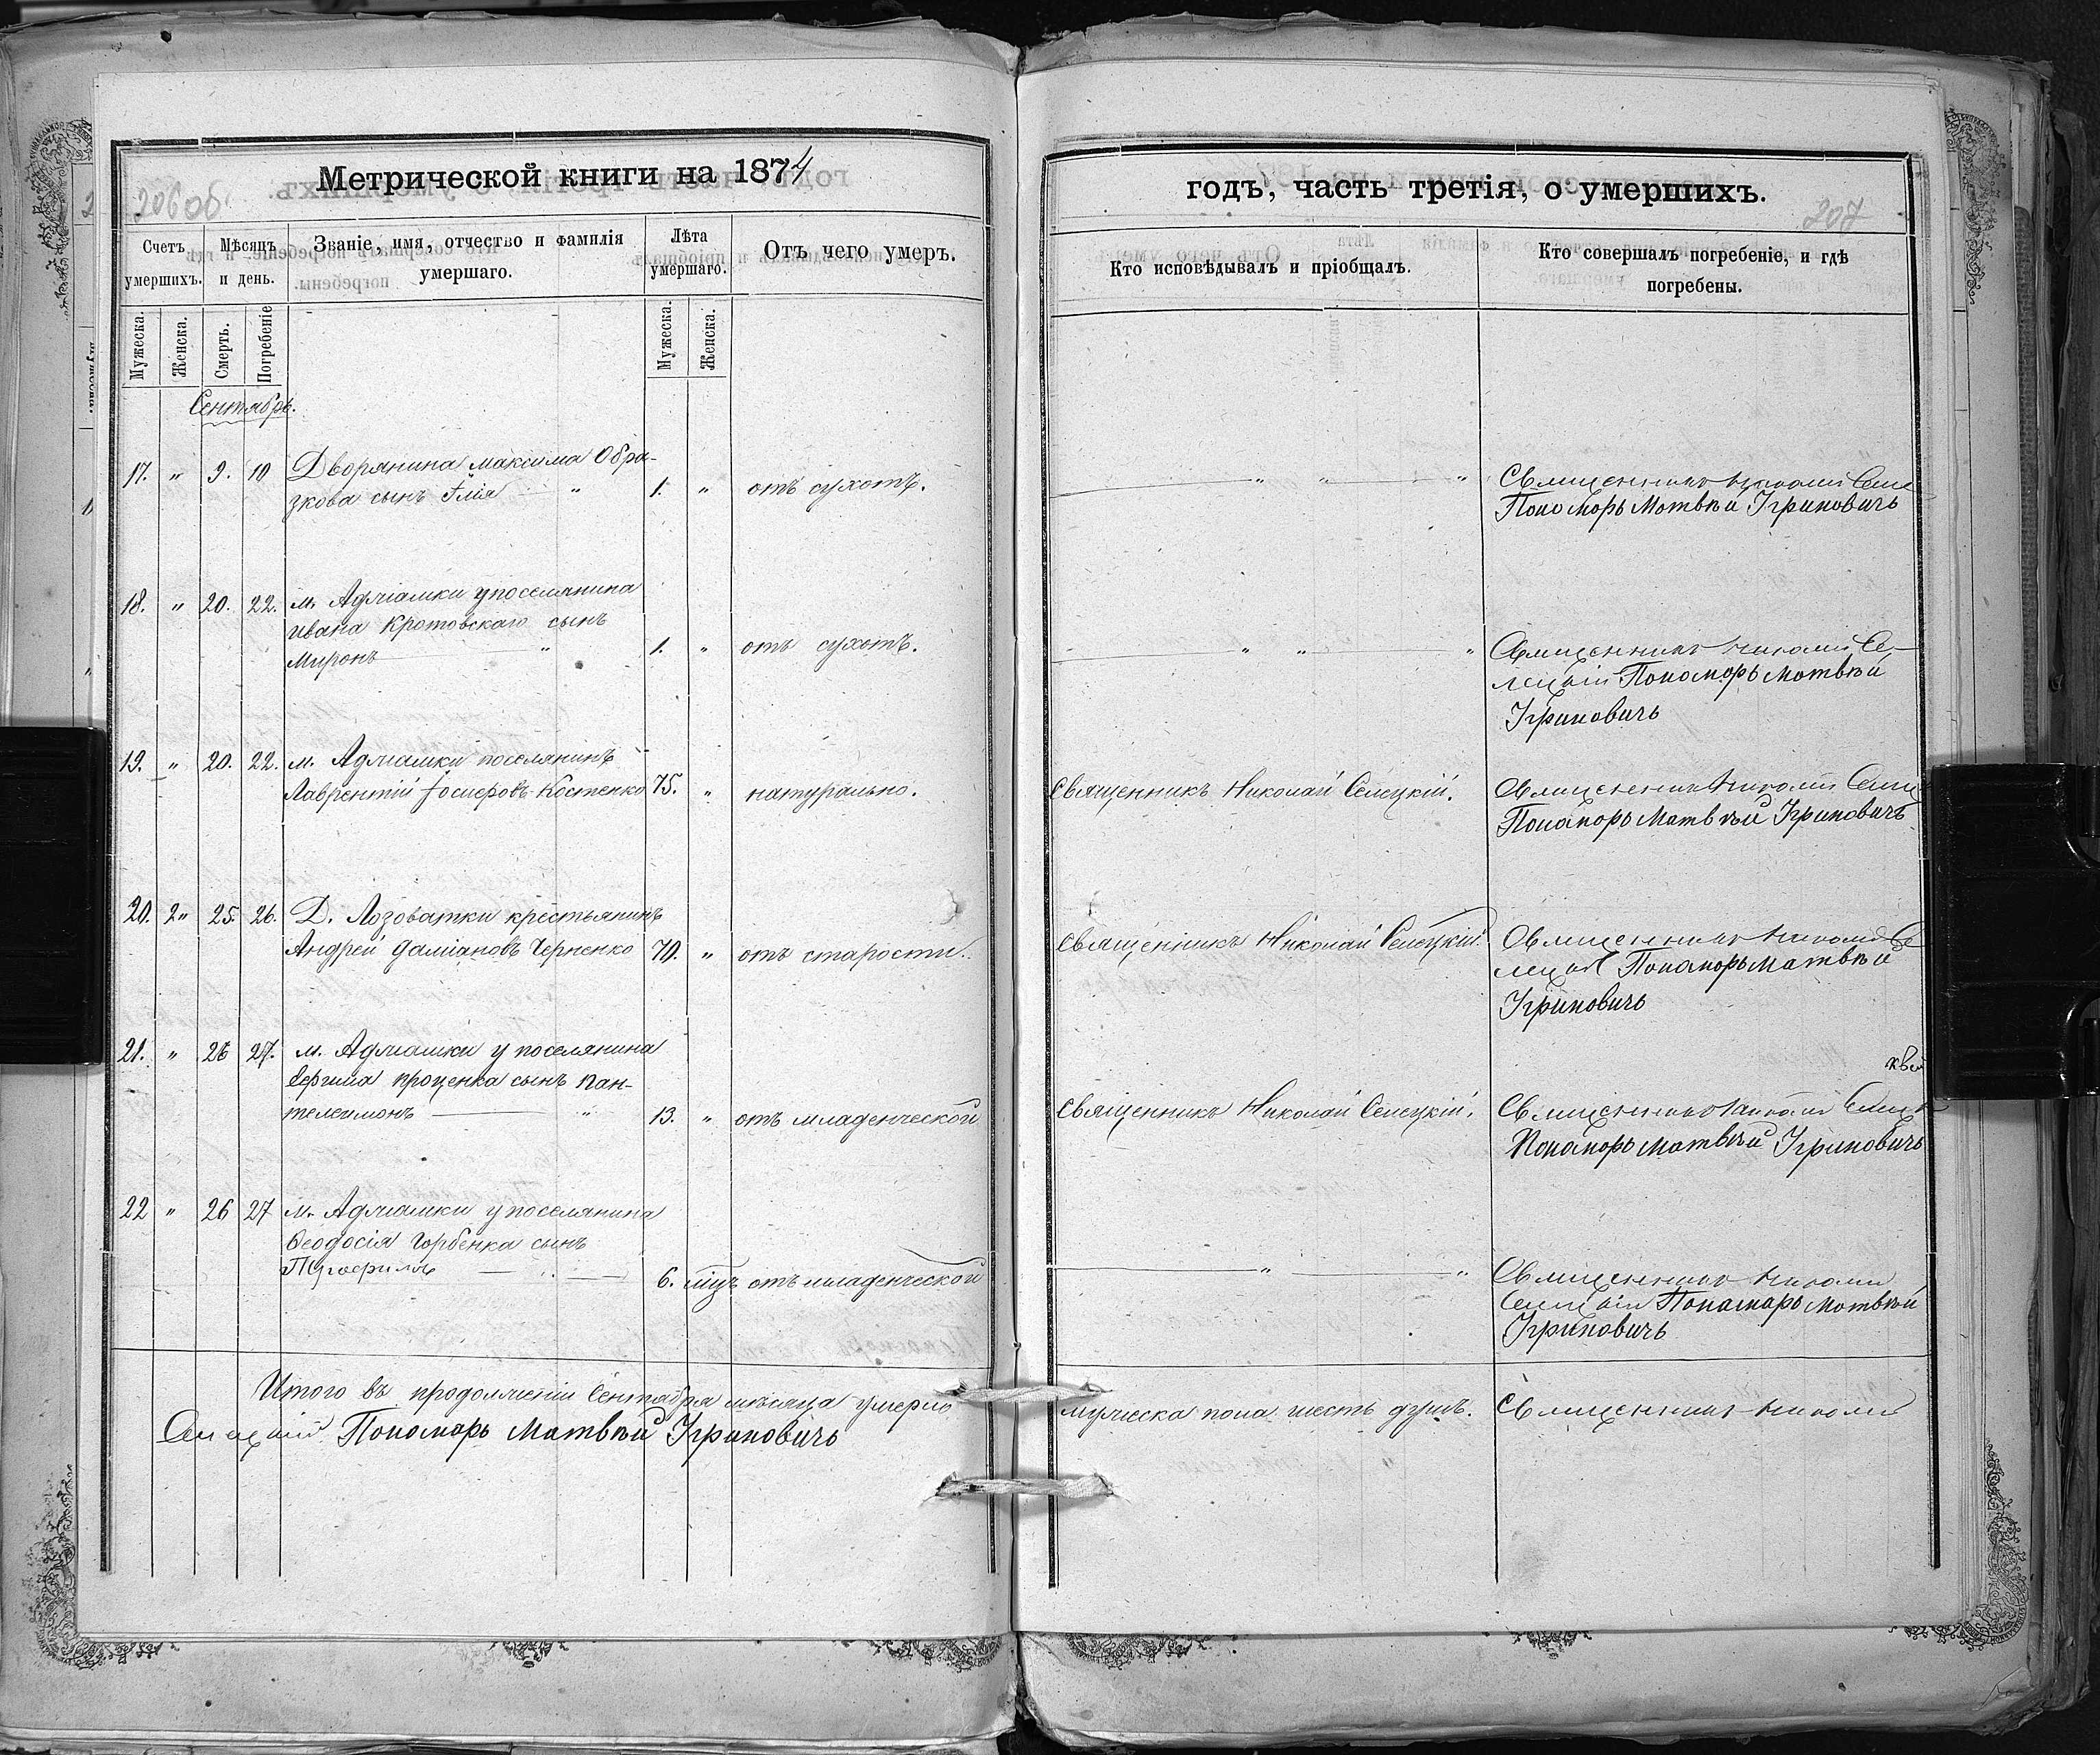 Метрической книги на 1874
206об
Счетъ умершихъ.
Мѣсяцъ и день.
Званіе, имя, отчество и фамилія умершаго.
Лѣта умершаго.
Отъ чего умеръ.
Мужеска.
Женска.
Смерть.
Погребеніе
Мужеска.
Женска.
Сентябрь.
17. " 9. 10 Дворянина Максима Обра-
зкова сынъ Илія " 1. " отъ сухотъ.
18. " 20. 22. м. Аджіамки у поселянина
Ивана Кротовскаго сынъ
Миронъ " 1. " отъ сухотъ.
19. " 20. 22. м. Аджіамки поселянинъ
Лаврентій Іосифовъ Костенко 75. " натурально.
20. 2" 25. 26. Д. Лозоватки крестьянинъ
Андрей Даміановъ Черненко 70. " отъ старости.
21. " 26 27. м. Аджіамки у поселянина
Сергия Проценка сынъ Пан-
телеимонъ " 13. " отъ младенческой
22 " 26 27 м. Аджіамки у поселянина
Ѳеодосія Горбенка сынъ
6. мцъ отъ младенческой
Итого въ продолженіи Сентября мѣсяца умерло
Селецкій Пономарь Матвѣй Угриновичъ
годъ, часть третія, о умершихъ.
207
Кто исповѣдывалъ и пріобщалъ.
Кто совершалъ погребеніе, и гдѣ погребены.
" " " Священникъ Николай Селе
Пономарь Матвѣй Угриновичъ
" " " Священникъ Николай Се-
лецкій Пономарь Матвѣй
Угриновичъ
Священникъ Николай Селецкій. Священникъ Николай Селец
Пономарь Матвѣй Угриновичъ
Священникъ Николай Селецкій. Священникъ Николай Се
лецкій Пономарь Матвѣй
Угриновичъ
Священникъ Николай Селецкій. Священникъ Николай Селец
Пономарь Матвѣй Угриновичъ
" " Священникъ Николай
Селецкій Пономарь Матвѣй
Угриновичъ
мужеска пола шесть душъ. Священникъ Николай